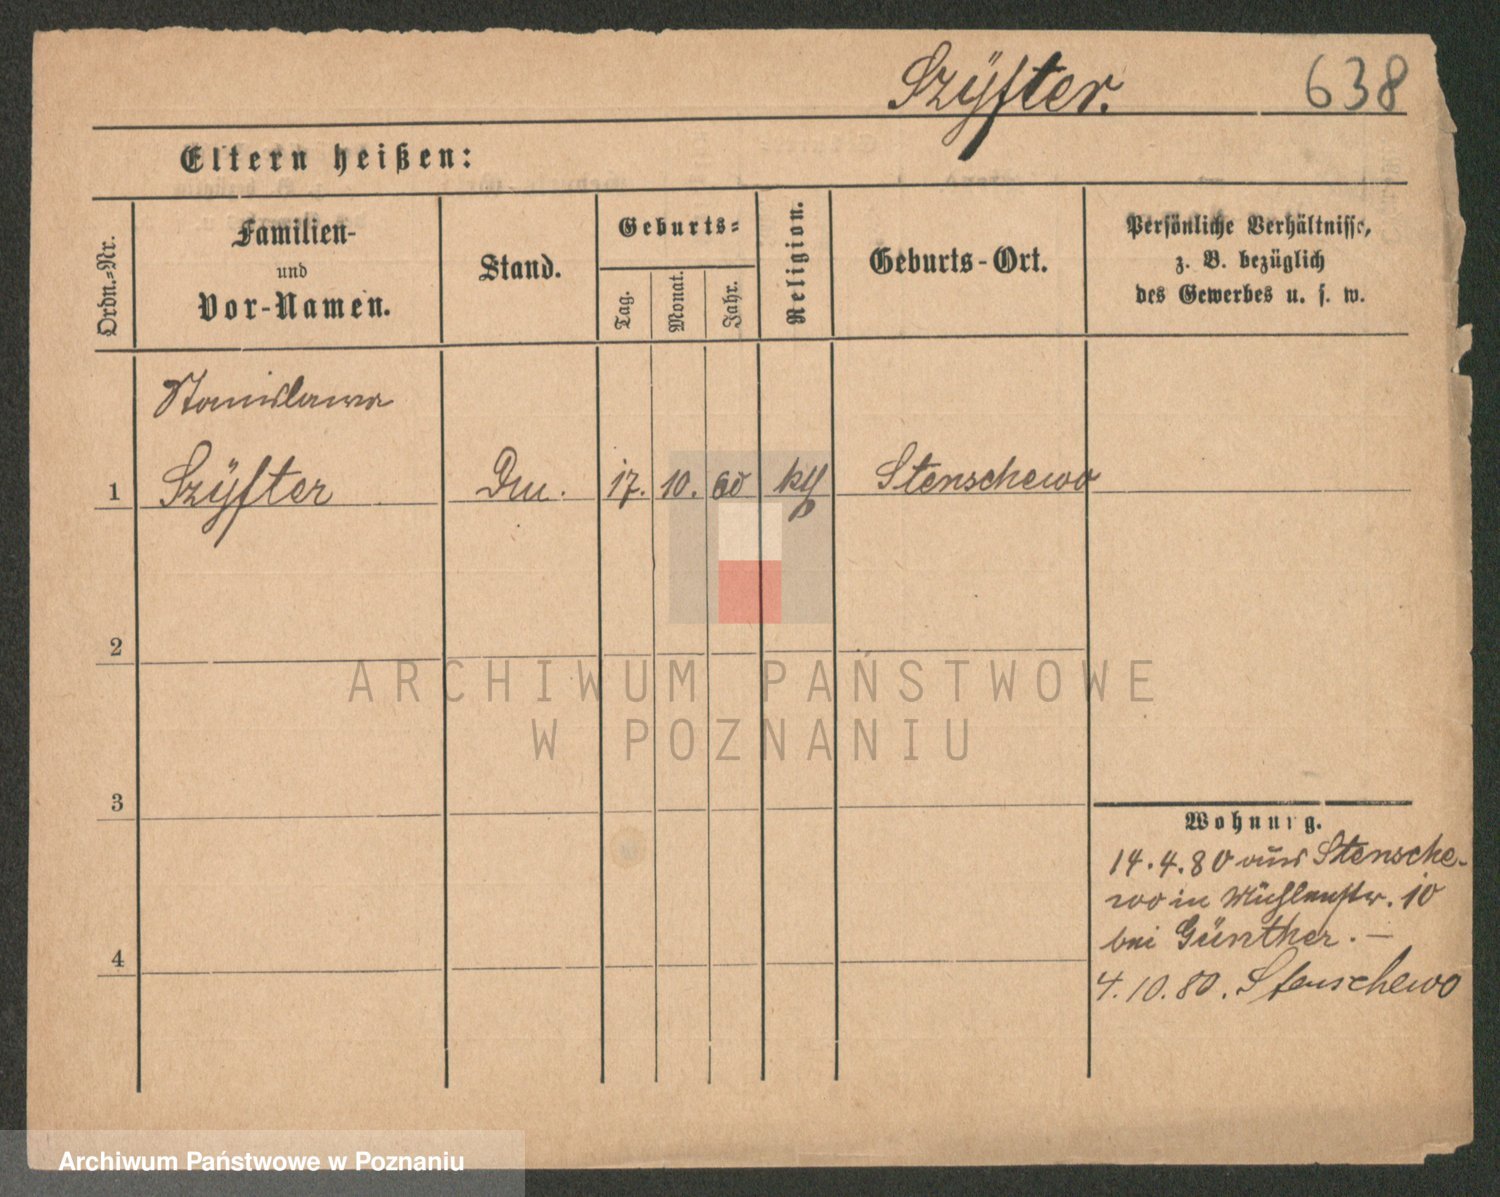 Szÿfter.
638
Eltern heißen:
Ordn.-Nr.
Familien-
und
Vor-Namen.
Stand.
Geburts-
Tag.
Monat.
Jahr.
Religion.
Geburts-Ort.
Persönliche Verhältnisse,
z. B. bezüglich
des Gewerbes u. s. w.
Stanislawa
1 Szÿfter 17. 10. 60 kth Stenschewo
2
3
4
Wohnung.
14.4.80 aus Stensche-
wo in Mühlenstr. 10
bei Günther. —
4.10.80. Stenschewo
ARCHIWUM PAŃSTWOWE
W POZNANIU
Archiwum Państwowe w Poznaniu